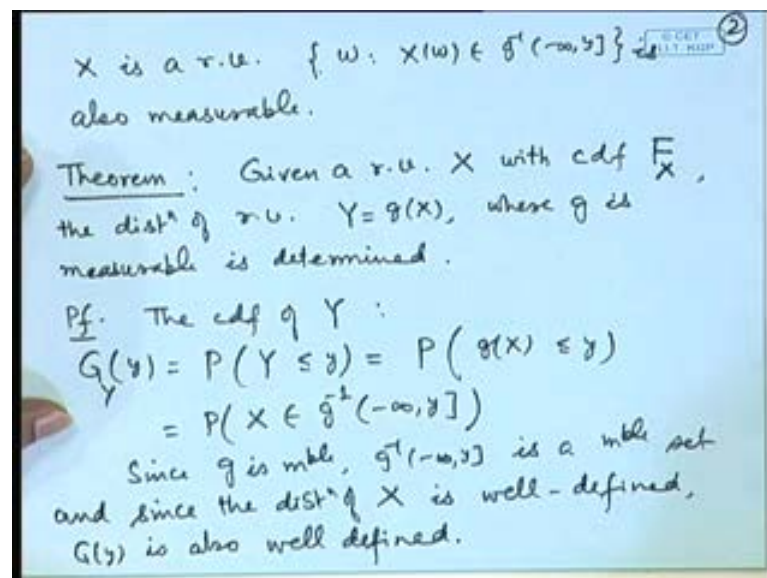 ②
© CET
I.I.T. KGP
X is a r.u. { ω: X(ω) ∈ g⁻¹(-∞, y] } is
also measurable.
Theorem : Given a r.u. X with cdf F_X ,
the distⁿ of r.u. Y = g(X), where g is
measurable is determined.
Pf. The cdf of Y :
G_Y(y) = P( Y ≤ y) = P( g(X) ≤ y)
= P( X ∈ g⁻¹(-∞, y])
Since g is mble, g⁻¹(-∞, y] is a mble set
and since the distⁿ of X is well-defined,
G(y) is also well defined.